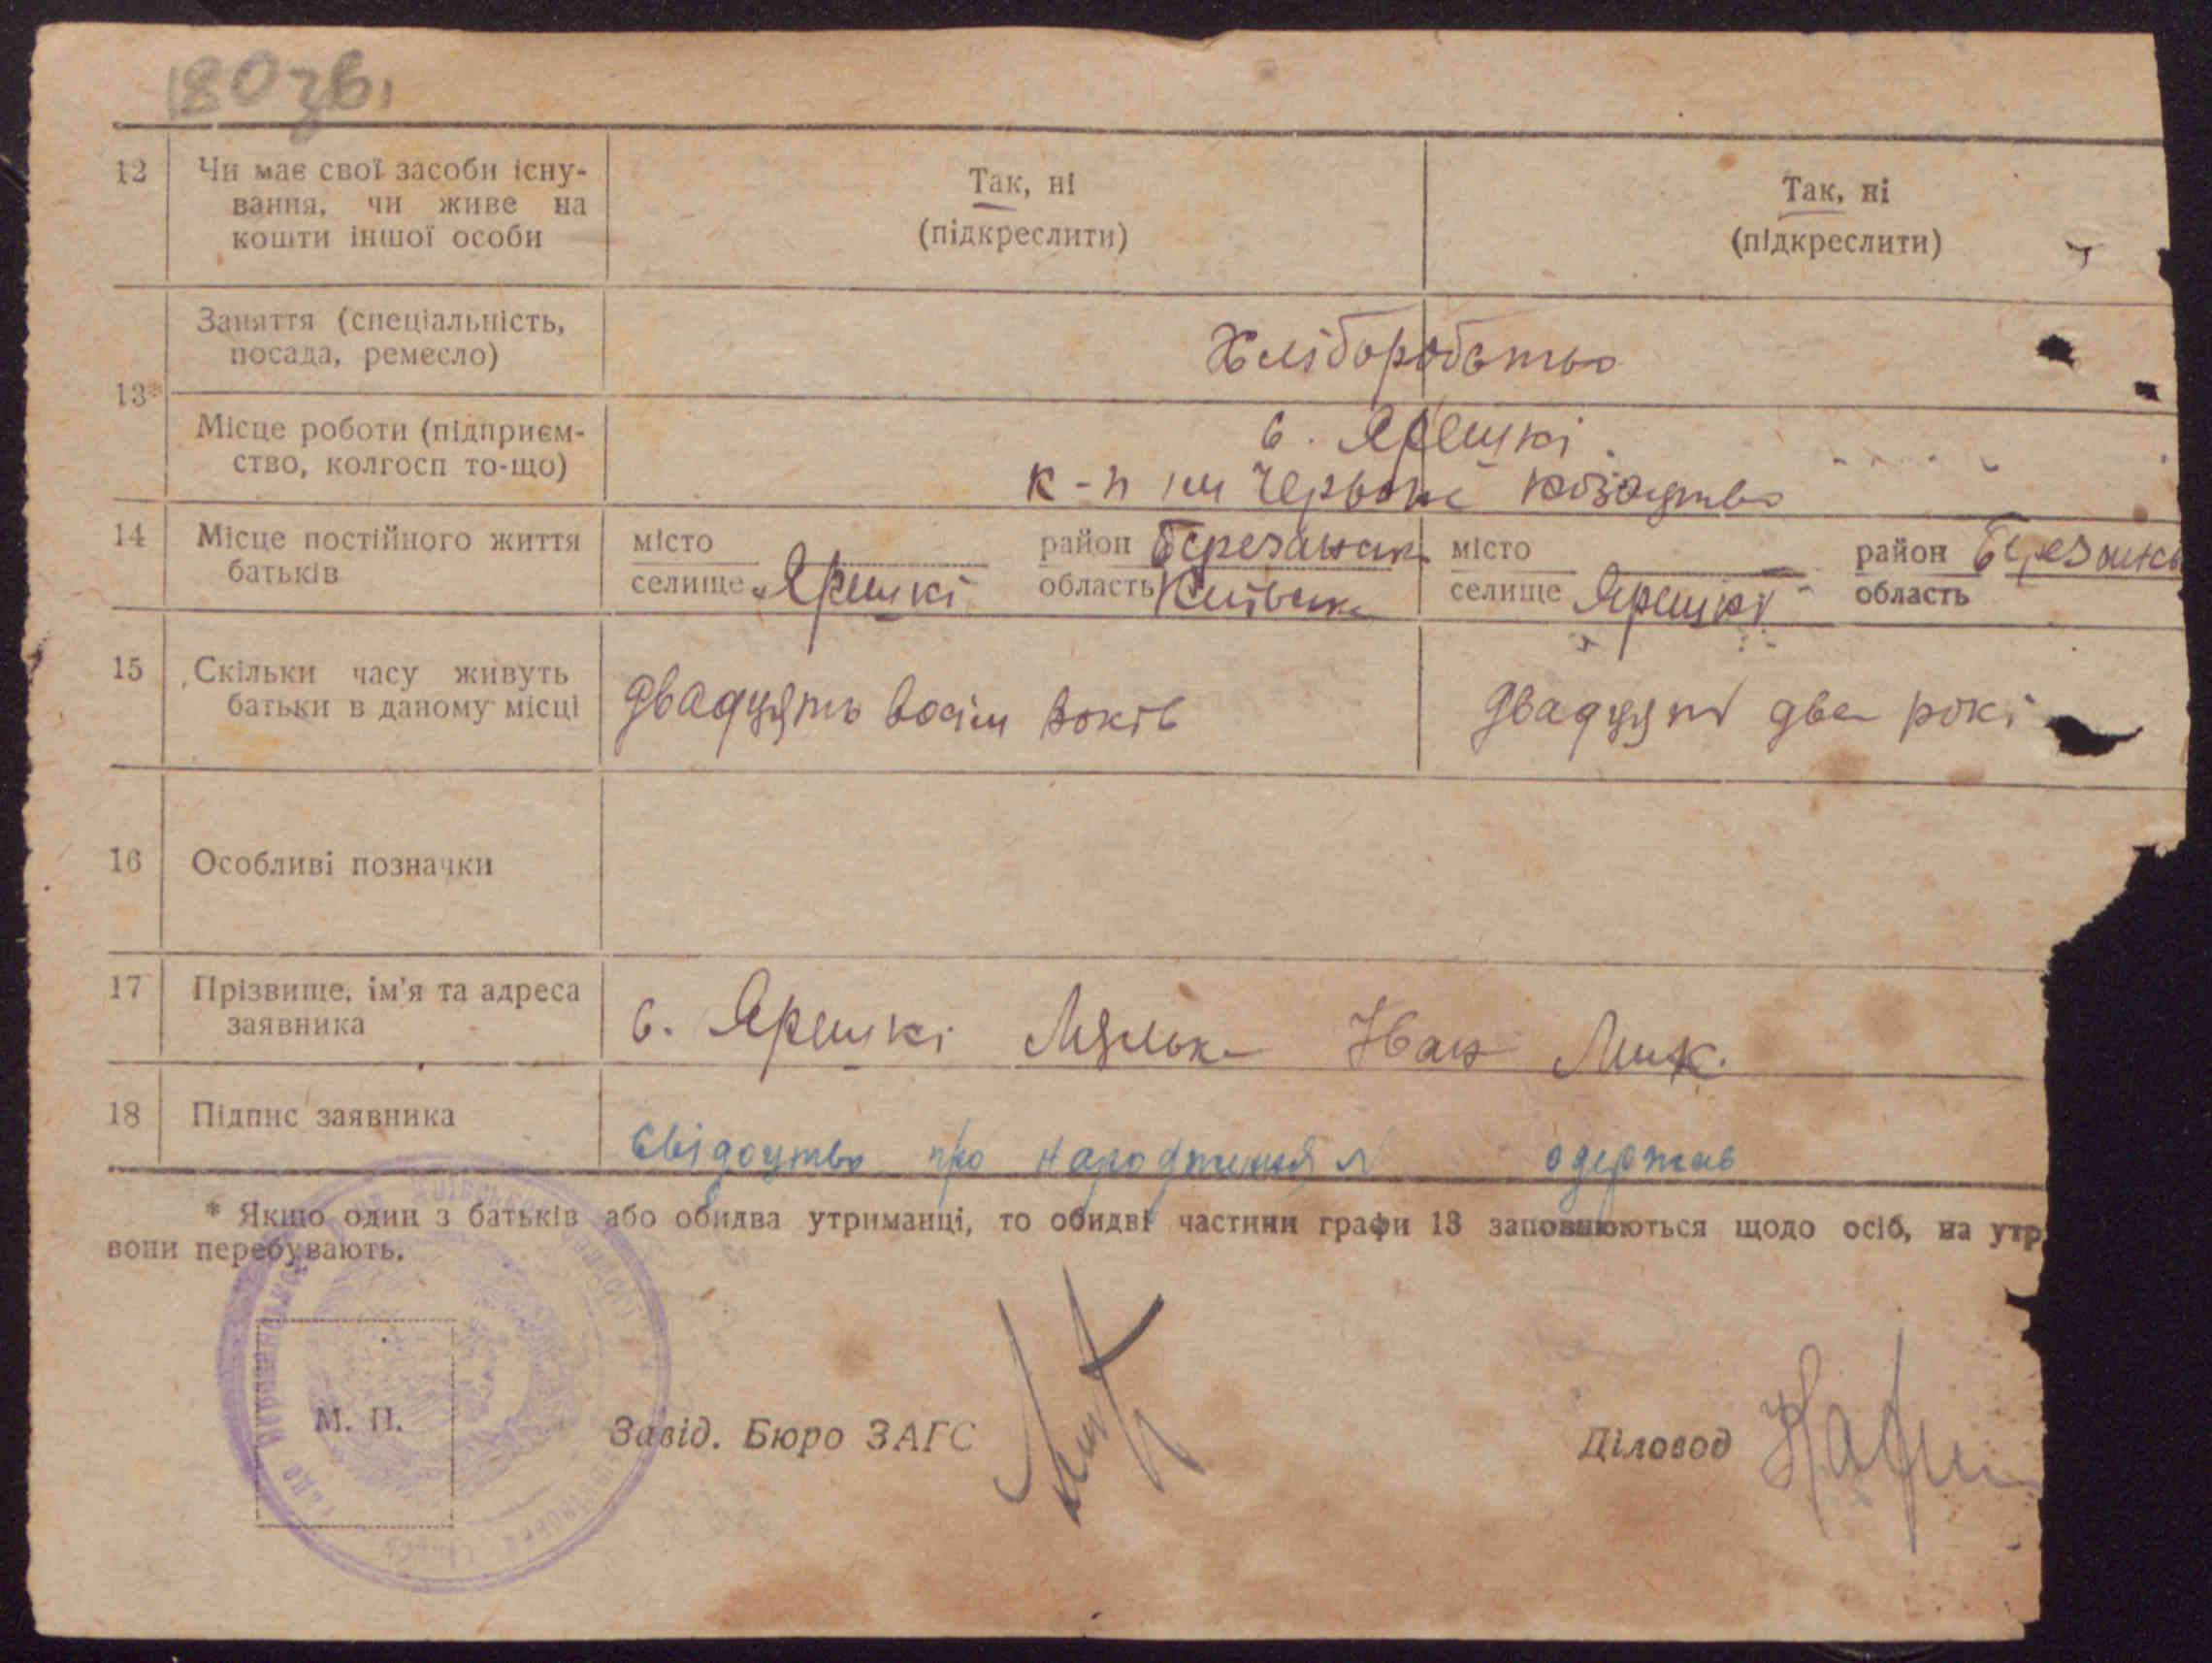 180 зв.
12 Чи має свої засоби існу-
вання, чи живе на
кошти іншої особи
Так, ні
(підкреслити)
Так, ні
(підкреслити)
13*
Заняття (спеціальність,
посада, ремесло)
Хліборобство
Місце роботи (підприєм-
ство, колгосп то-що)
с. Ярешкі
к-п ім Червоне козацтво
14 Місце постійного життя
батьків
місто
селище Ярешкі
район Березанськ
область Київська
місто
селище Ярешкі
район Березансь
область
15 Скільки часу живуть
батьки в даному місці
двадцять восім років
двадцят два рокі
16 Особливі позначки
17 Прізвище, ім'я та адреса
заявника
с. Ярешкі Мялька Іван Мик.
18 Підпис заявника
Свідоцтво про народження одержав
* Якщо один з батьків або обидва утриманці, то обидві частини графи 13 заповнюються щодо осіб, на утр
вони перебувають.
М. П.
Завід. Бюро ЗАГС
Діловод